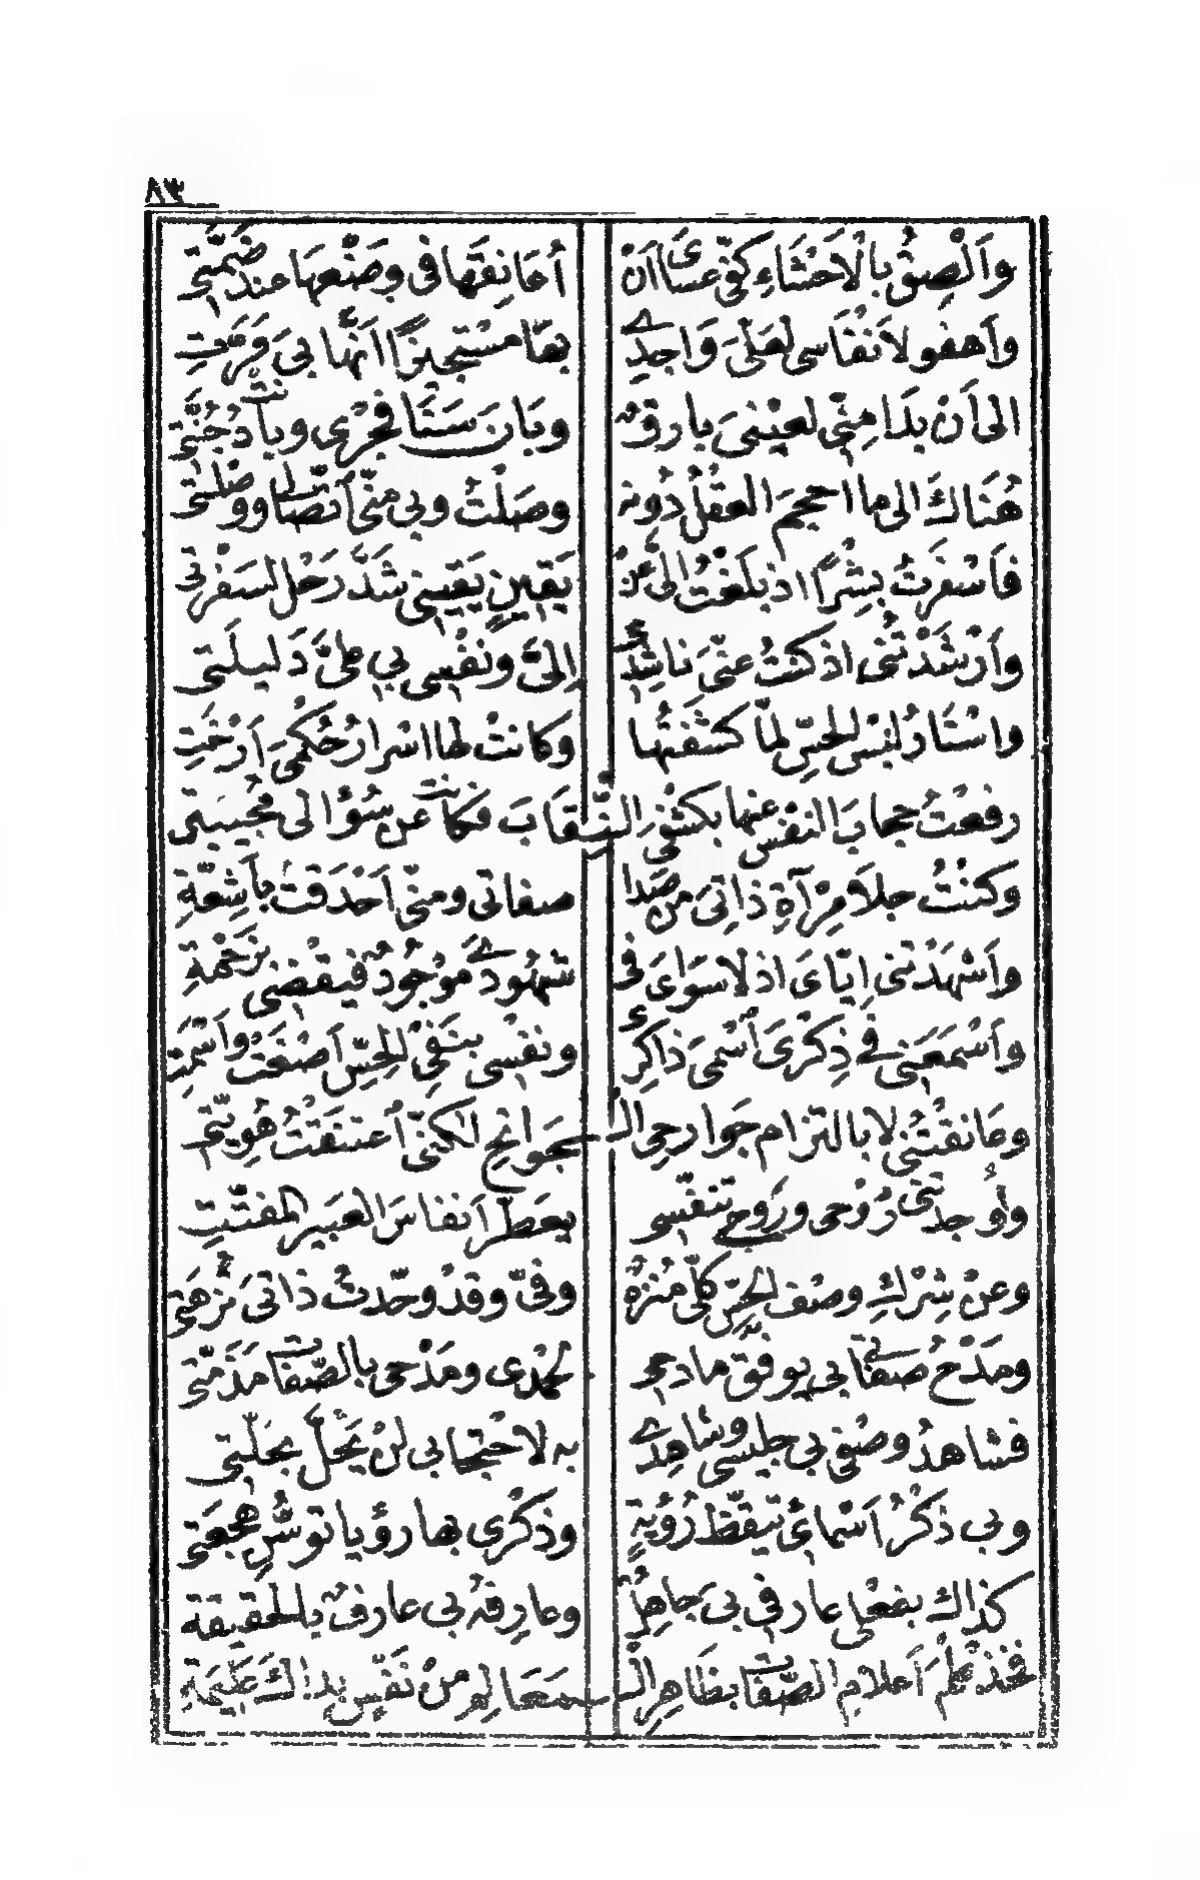 ٨٣
وَأُلْصِقُ بالْأَحْشَاءِ كَفّى عساىَ أَنْ أُعَانِقَها فى وضْعِهَا عندَ ضَمّتى
وأَهفو لأَنفَاسى لعَلّى وَاجِدِى بهَا مستجيزًا أَنّها بىَ مَرَّتِ
الى أَنْ بدَا مِنّى لعَيْنىَ بارقٌ وبَانَ سَنَا فَجْرى وبانتْ دُجُنَّتى
هُنَاكَ الى ما احجمَ العقلُ دُونه وصَلْتُ وبى منّى اتّصالى ووصْلتى
فأسْفرتُ بِشْرًا اذ بلَغْتُ الىَّ عنْ يَقينٍ يَقينى شَدَّ رَحْلٍ لسَفْرتى
وأَرْشَدْتُنى اذ كنتُ عنّىَ ناشِدى إلىَّ ونفْسى بى علىَّ دَليلتى
واسْتَارُ لبْسِ الحِسّ لمّا كشَفتُها وكانتْ لها اسْرارُ حُكْمىَ أَرْخَتِ
رفعْتُ حجابَ النفْس عنها بكشْفىَ النّقَابَ فكانت عن سُؤالى مُجيبَتى
وكنْتُ جلَا مِرْآةِ ذاتىَ من صَدا صفاتى ومنّى أَحْدَقَتْ بأَشِعّةِ
وأَشْهَدْتنى إيّاىَ اذ لا سوَاىَ فى شُهودىَ مَوْجُودٌ فيقْضى بزَحْمةِ
وأَسْمَعَنى فى ذِكْرىَ أسْمىَ ذاكِرى ونفْسى بنَفىِ الحِسّ أَصْغَتْ وأَسْمَتِ
وعَانقْتُنى لا بالتزام جوارحى الـجَوانِحَ لكنّى أعتنقتُ هُويّتى
وأوجدتنى رُوحى ورَوحُ تنفّسى يعطّر أنفاسَ العَبير المفتّتِ
وعنْ شِرْكِ وصْف الحِسّ كلّى مُنزَّهٌ وفىّ وقدْ وحّدتُ ذاتىَ نُزهَتى
ومَدْحُ صفاتى بى يوفّق مادحى لحمْدى ومَدْحى بالصّفات مَذَمّتى
فشاهدُ وصْفى بى جليسى وشاهدى به لاحْتجابى لنْ يَحُلَّ بحَلّتى
وبى ذكْرُ أَسْمائى تيقّظ رُؤيةٍ وذكْرى بها رؤيا توسُّنِ هجعَتى
كذاك بفعْلى عارفى بىَ جاهلٌ وعارفهُ بى عارفٌ بالحقيقة
فخذْ علمَ أَعلامِ الصّفات بظَاهِرِ الـمَعَالِمِ منْ نَفْسٍ بذاكَ عَليمَةِ